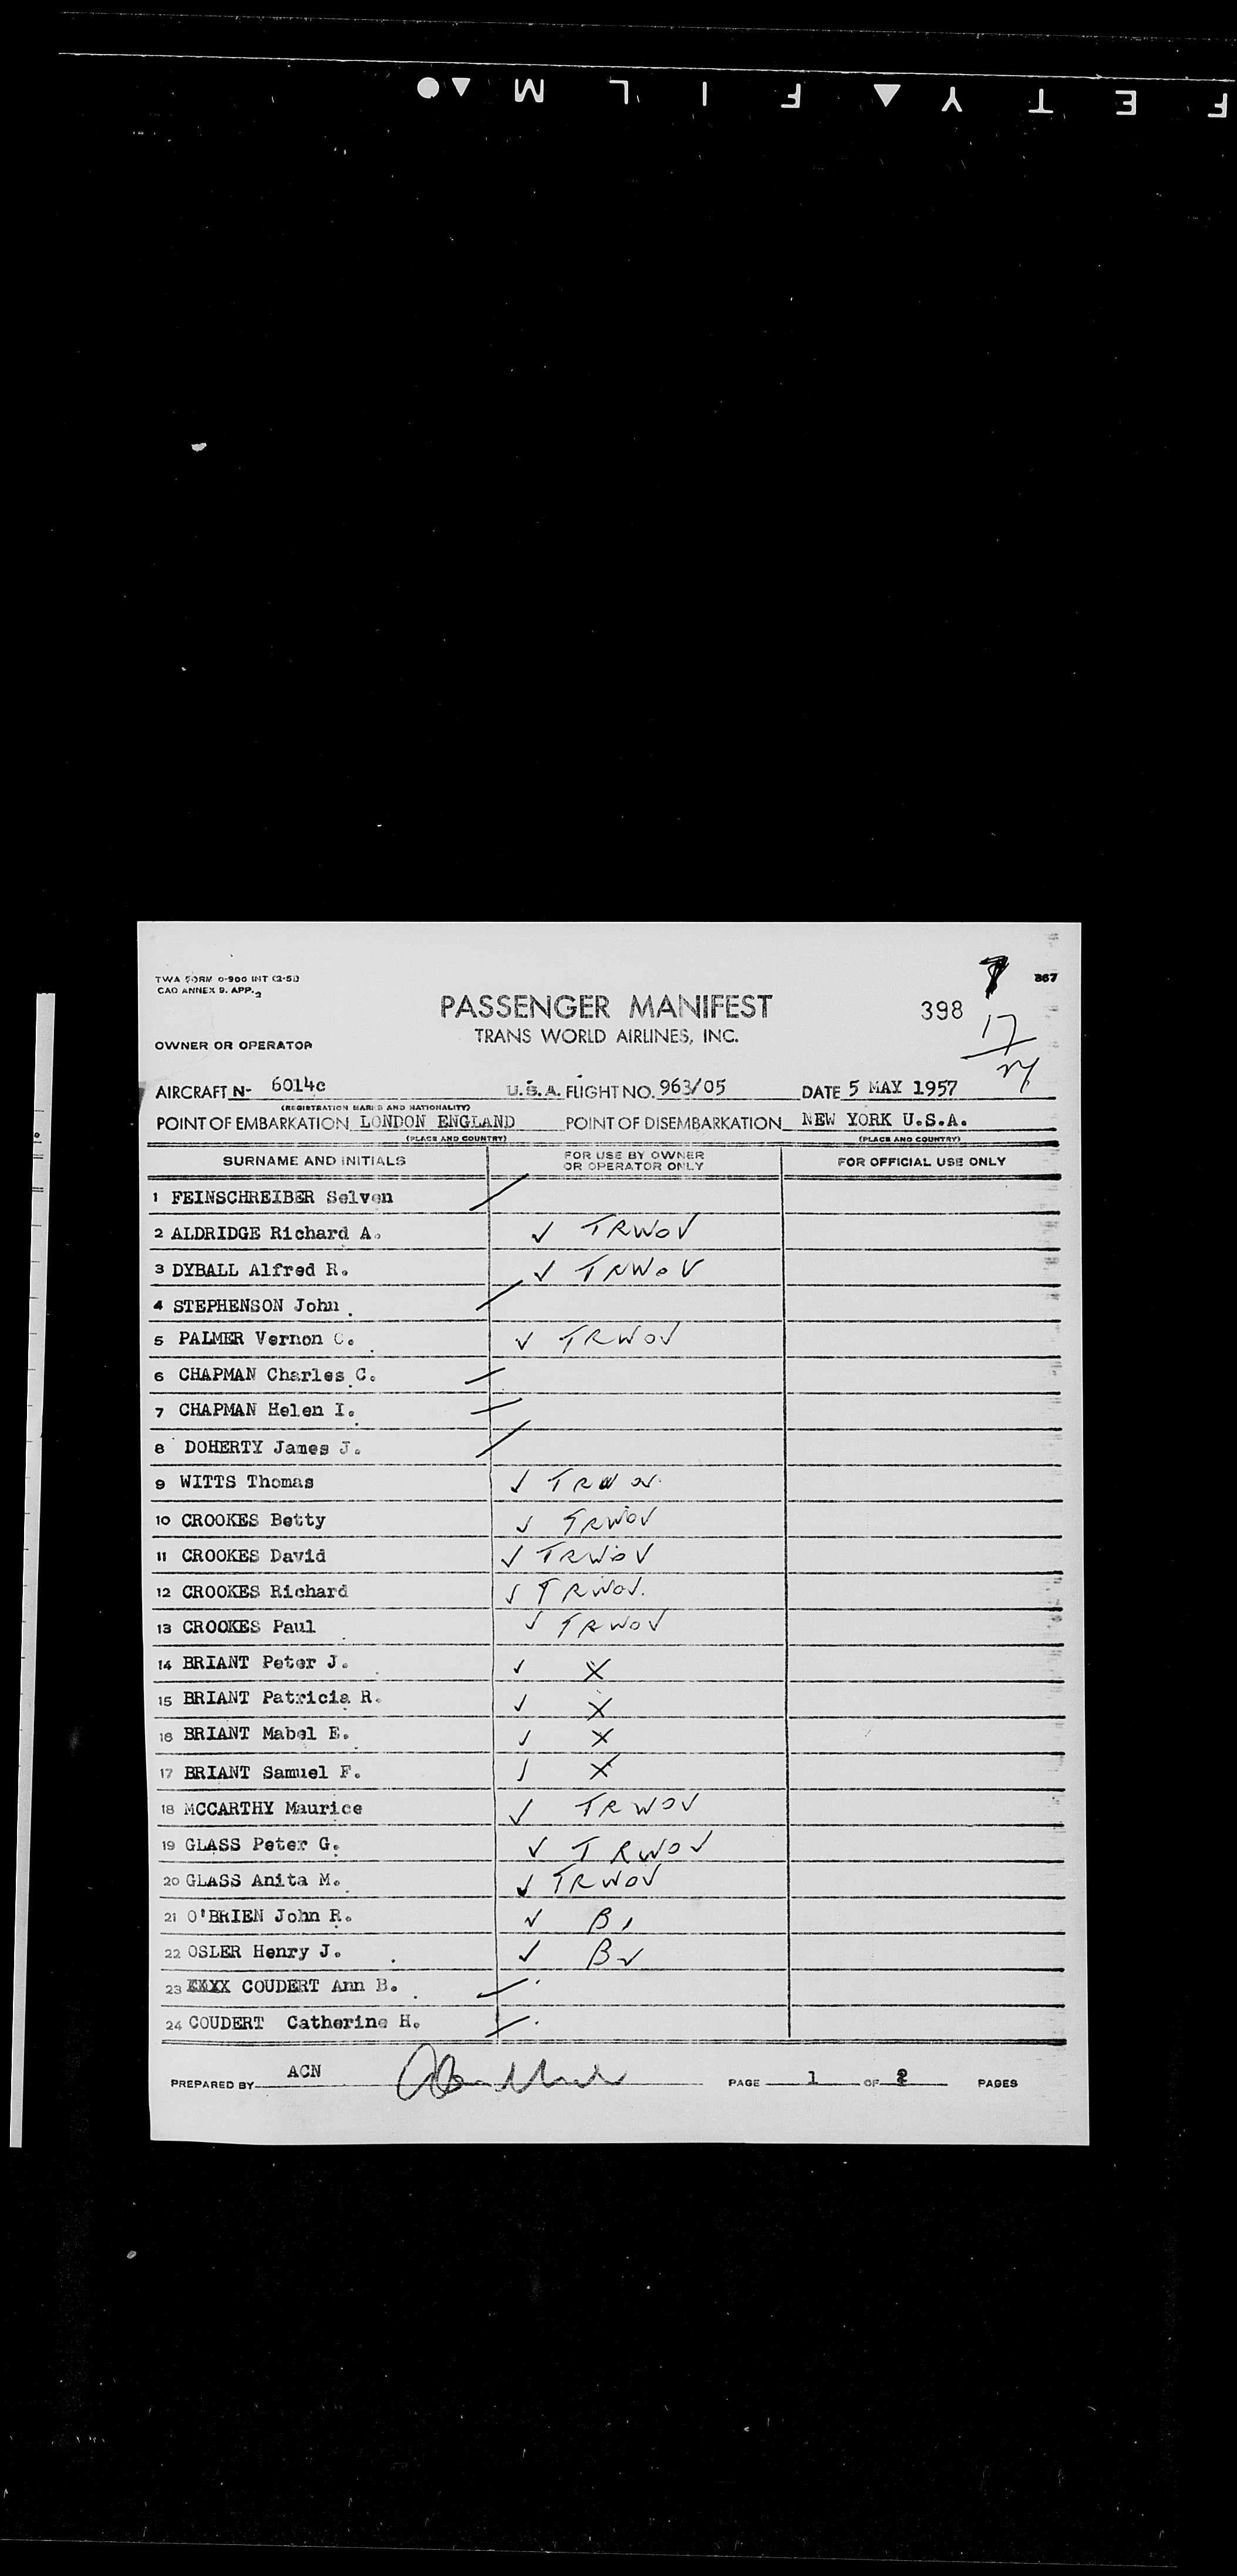 F E T Y ▲ F I L M ▲ ●
TWA FORM 0-900 INT (2-51)
CAO ANNEX 9. APP. 2
867
PASSENGER MANIFEST
398
TRANS WORLD AIRLINES, INC.
17
OWNER OR OPERATOR
AIRCRAFT N- 6014c U.S.A. FLIGHT NO. 963/05 DATE 5 MAY 1957
(REGISTRATION MARKS AND NATIONALITY)
POINT OF EMBARKATION LONDON ENGLAND POINT OF DISEMBARKATION NEW YORK U.S.A.
(PLACE AND COUNTRY) (PLACE AND COUNTRY)
SURNAME AND INITIALS FOR USE BY OWNER OR OPERATOR ONLY FOR OFFICIAL USE ONLY
1 FEINSCHREIBER Selven
2 ALDRIDGE Richard A. ✓ TRWOV
3 DYBALL Alfred R. ✓ TRWOV
4 STEPHENSON John
5 PALMER Vernon C. ✓ TRWOV
6 CHAPMAN Charles C.
7 CHAPMAN Helen I.
8 DOHERTY James J.
9 WITTS Thomas ✓ TRWOV
10 CROOKES Betty ✓ TRWOV
11 CROOKES David ✓ TRWOV
12 CROOKES Richard ✓ TRWOV.
13 CROOKES Paul ✓ TRWOV
14 BRIANT Peter J. ✓ X
15 BRIANT Patricia R. ✓ X
16 BRIANT Mabel E. ✓ X
17 BRIANT Samuel F. ✓ X
18 MCCARTHY Maurice ✓ TRWOV
19 GLASS Peter G. ✓ TRWOV
20 GLASS Anita M. ✓ TRWOV
21 O'BRIEN John R. ✓ B
22 OSLER Henry J. ✓ B
23 XXXX COUDERT Ann B.
24 COUDERT Catherine H.
PREPARED BY ACN PAGE 1 OF 2 PAGES